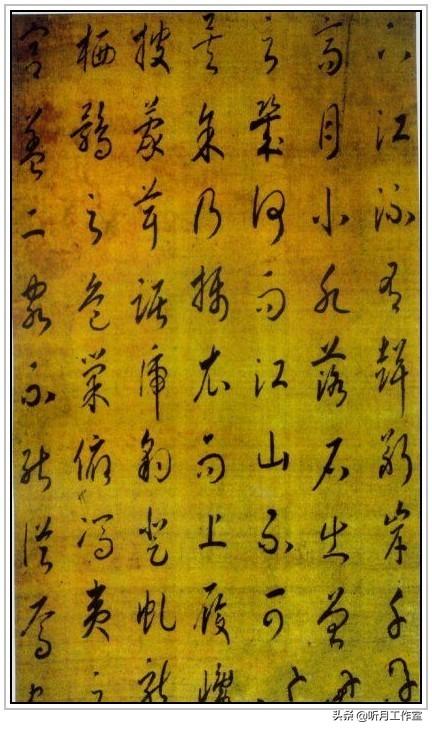 下江流有聲斷岸千尺
高月小水落石出曾日
之幾何而江山不可
矣余乃攝衣而上履巉
披蒙茸踞虎豹登虬龍
栖鶻之危巢俯馮夷之
宮蓋二客不能從焉
头条 @听月工作室